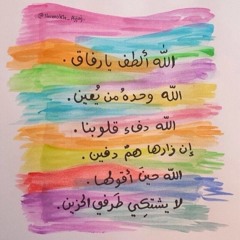 الله ألطف يا رفاق .
الله وحدهُ من يُعين .
الله دفءُ قلوبنا .
إن زارها همٌ دفين .
الله حينَ أقولها .
لا يشتكي طرفي الحزين .